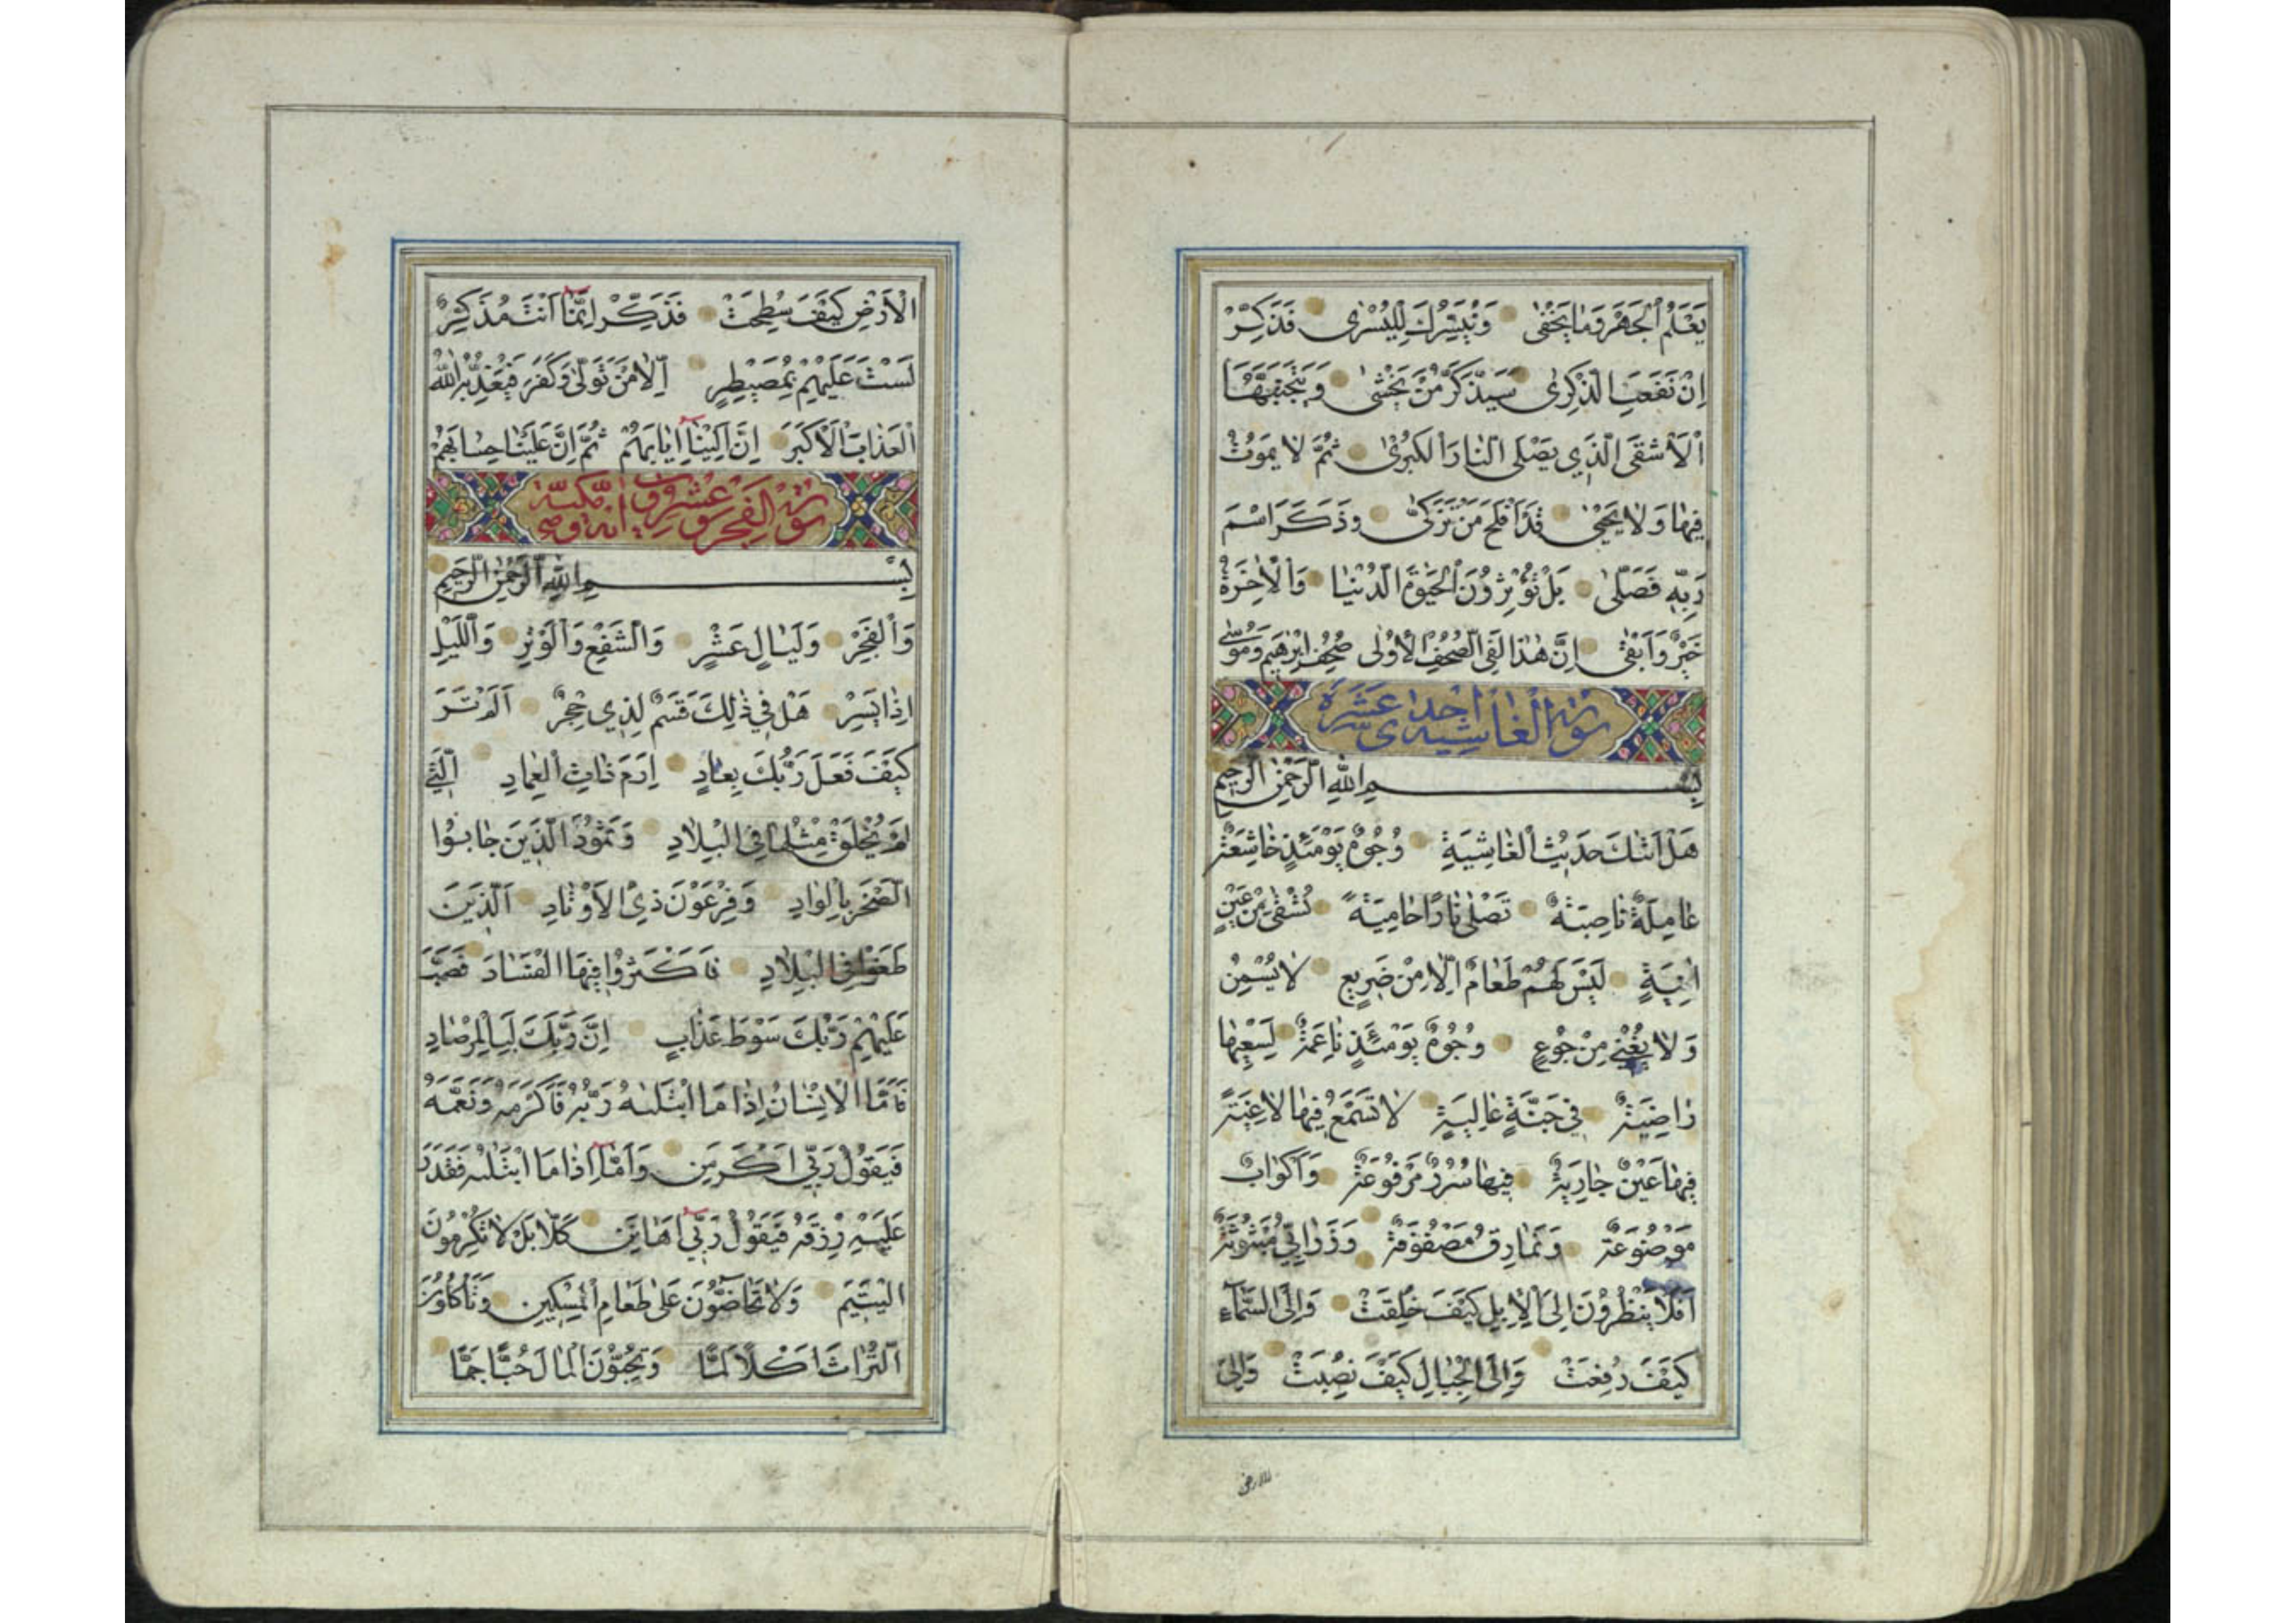 يَعْلَمُ الْجَهْرَ وَمَا يَخْفٰى وَنُيَسِّرُكَ لِلْيُسْرٰى فَذَكِّرْ
اِنْ نَفَعَتِ الذِّكْرٰى سَيَذَّكَّرُ مَنْ يَخْشٰى وَيَتَجَنَّبُهَا
الْاَشْقَى الَّذِي يَصْلَى النَّارَ الْكُبْرٰى ثُمَّ لَا يَمُوتُ
فِيهَا وَلَا يَحْيٰى قَدْ اَفْلَحَ مَنْ تَزَكّٰى وَذَكَرَ اسْمَ
رَبِّهِ فَصَلّٰى بَلْ تُؤْثِرُونَ الْحَيٰوةَ الدُّنْيَا وَالْاٰخِرَةُ
خَيْرٌ وَاَبْقٰى اِنَّ هٰذَا لَفِي الصُّحُفِ الْاُولٰى صُحُفِ اِبْرٰهِيمَ وَمُوسٰى
سورة الغاشية احدى عشرة
بِسْمِ اللّٰهِ الرَّحْمٰنِ الرَّحِيمِ
هَلْ اَتٰىكَ حَدِيثُ الْغَاشِيَةِ وُجُوهٌ يَوْمَئِذٍ خَاشِعَةٌ
عَامِلَةٌ نَاصِبَةٌ تَصْلٰى نَارًا حَامِيَةً تُسْقٰى مِنْ عَيْنٍ
اٰنِيَةٍ لَيْسَ لَهُمْ طَعَامٌ اِلَّا مِنْ ضَرِيعٍ لَا يُسْمِنُ
وَلَا يُغْنِي مِنْ جُوعٍ وُجُوهٌ يَوْمَئِذٍ نَاعِمَةٌ لِسَعْيِهَا
رَاضِيَةٌ فِي جَنَّةٍ عَالِيَةٍ لَا تَسْمَعُ فِيهَا لَاغِيَةً
فِيهَا عَيْنٌ جَارِيَةٌ فِيهَا سُرُرٌ مَرْفُوعَةٌ وَاَكْوَابٌ
مَوْضُوعَةٌ وَنَمَارِقُ مَصْفُوفَةٌ وَزَرَابِيُّ مَبْثُوثَةٌ
اَفَلَا يَنْظُرُونَ اِلَى الْاِبِلِ كَيْفَ خُلِقَتْ وَاِلَى السَّمَاءِ
كَيْفَ رُفِعَتْ وَاِلَى الْجِبَالِ كَيْفَ نُصِبَتْ وَاِلَى
الارض
الْاَرْضِ كَيْفَ سُطِحَتْ فَذَكِّرْ اِنَّمَا اَنْتَ مُذَكِّرٌ
لَسْتَ عَلَيْهِمْ بِمُصَيْطِرٍ اِلَّا مَنْ تَوَلّٰى وَكَفَرَ فَيُعَذِّبُهُ اللّٰهُ
الْعَذَابَ الْاَكْبَرَ اِنَّ اِلَيْنَا اِيَابَهُمْ ثُمَّ اِنَّ عَلَيْنَا حِسَابَهُمْ
سورة الفجر عشرون اية مكية
بِسْمِ اللّٰهِ الرَّحْمٰنِ الرَّحِيمِ
وَالْفَجْرِ وَلَيَالٍ عَشْرٍ وَالشَّفْعِ وَالْوَتْرِ وَاللَّيْلِ
اِذَا يَسْرِ هَلْ فِي ذٰلِكَ قَسَمٌ لِذِي حِجْرٍ اَلَمْ تَرَ
كَيْفَ فَعَلَ رَبُّكَ بِعَادٍ اِرَمَ ذَاتِ الْعِمَادِ الَّتِي
لَمْ يُخْلَقْ مِثْلُهَا فِي الْبِلَادِ وَثَمُودَ الَّذِينَ جَابُوا
الصَّخْرَ بِالْوَادِ وَفِرْعَوْنَ ذِي الْاَوْتَادِ اَلَّذِينَ
طَغَوْا فِي الْبِلَادِ فَاَكْثَرُوا فِيهَا الْفَسَادَ فَصَبَّ
عَلَيْهِمْ رَبُّكَ سَوْطَ عَذَابٍ اِنَّ رَبَّكَ لَبِالْمِرْصَادِ
فَاَمَّا الْاِنْسَانُ اِذَا مَا ابْتَلٰىهُ رَبُّهُ فَاَكْرَمَهُ وَنَعَّمَهُ
فَيَقُولُ رَبِّي اَكْرَمَنِ وَاَمَّا اِذَا مَا ابْتَلٰىهُ فَقَدَرَ
عَلَيْهِ رِزْقَهُ فَيَقُولُ رَبِّي اَهَانَنِ كَلَّا بَلْ لَا تُكْرِمُونَ
الْيَتِيمَ وَلَا تَحَاضُّونَ عَلٰى طَعَامِ الْمِسْكِينِ وَتَأْكُلُونَ
التُّرَاثَ اَكْلًا لَمًّا وَتُحِبُّونَ الْمَالَ حُبًّا جَمًّا